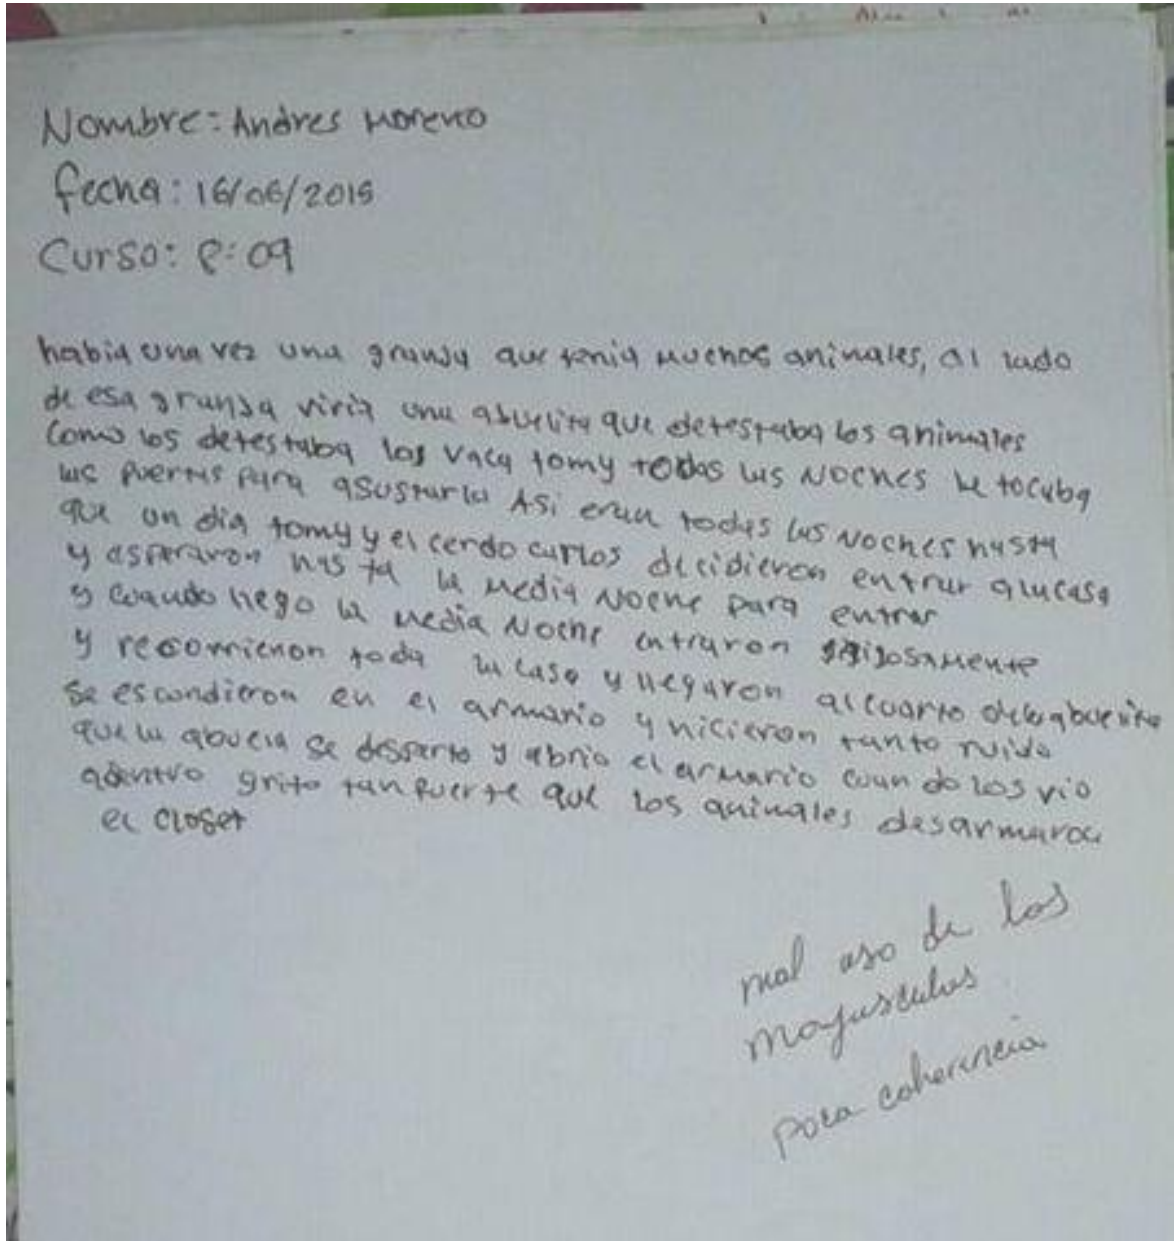 Nombre: Andres Moreno
fecha: 16/06/2015
Curso: 8:09
habia una vez una granja que tenia muchos animales, al lado
de esa granja vivia una abuelita que detestaba los animales
Como los detestaba los vaca tomy todas las Noches le tocaba
las puertas para asustarla Asi eran todas las Noches hasta
que un dia tomy y el cerdo carlos decidieron entrar a la casa
y esperaron hasta la media Noche para entrar
y cuando llego la media Noche entraron
y recorrienon toda la casa y llegaron al cuarto de la abuelita
se escondieron en el armario y hicieron tanto ruido
que la abuela se desperto y abrio el armario cuando los vio
adentro grito tan fuerte que los animales desarmaron
el closet
mal uso de las
mayusculas
poca coherencia